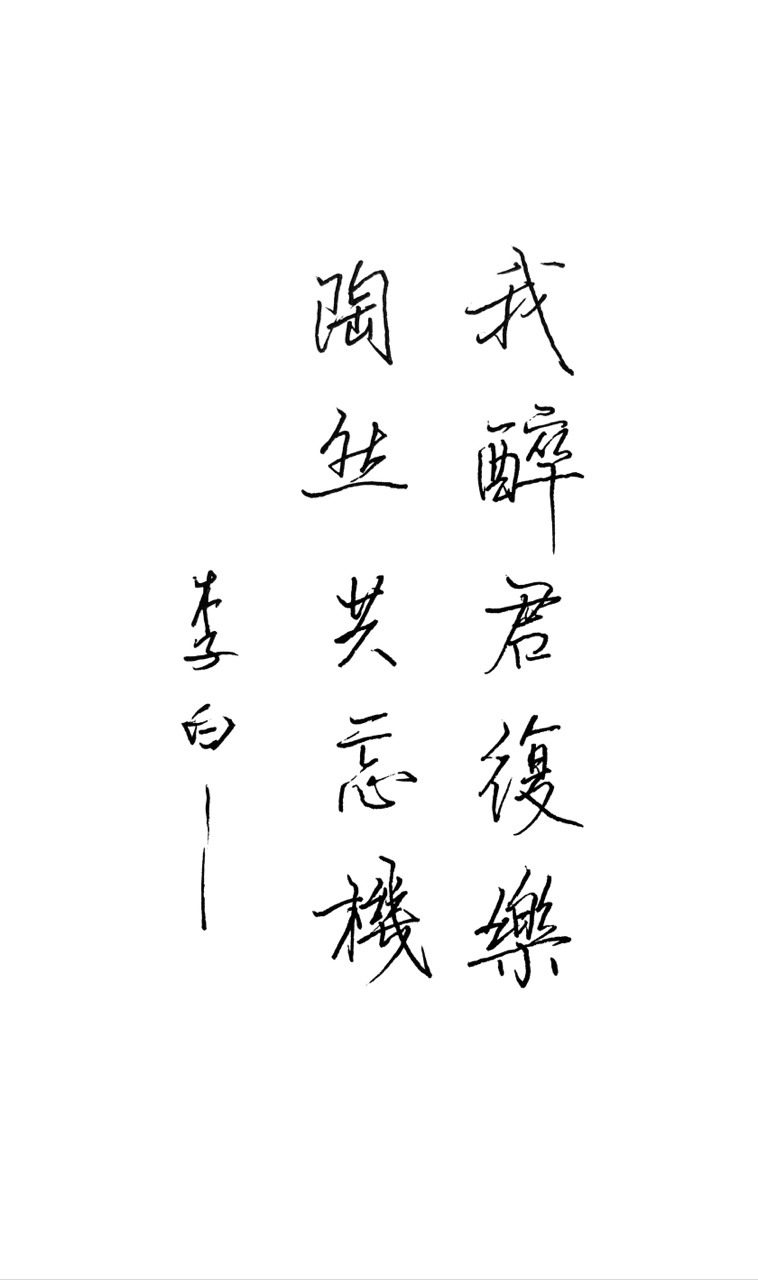 我醉君復樂
陶然共忘機
李白